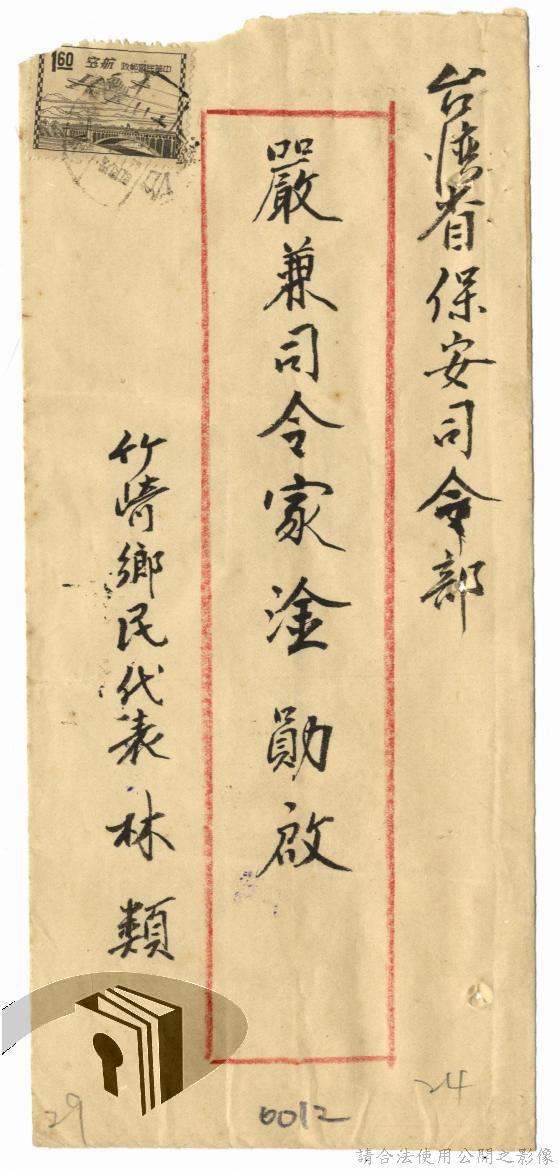 台灣省保安司令部
嚴兼司令家淦勛啟
竹崎鄉民代表林類
1.60
空航
政郵國民華中
29
6012
24
請合法使用公開之影像